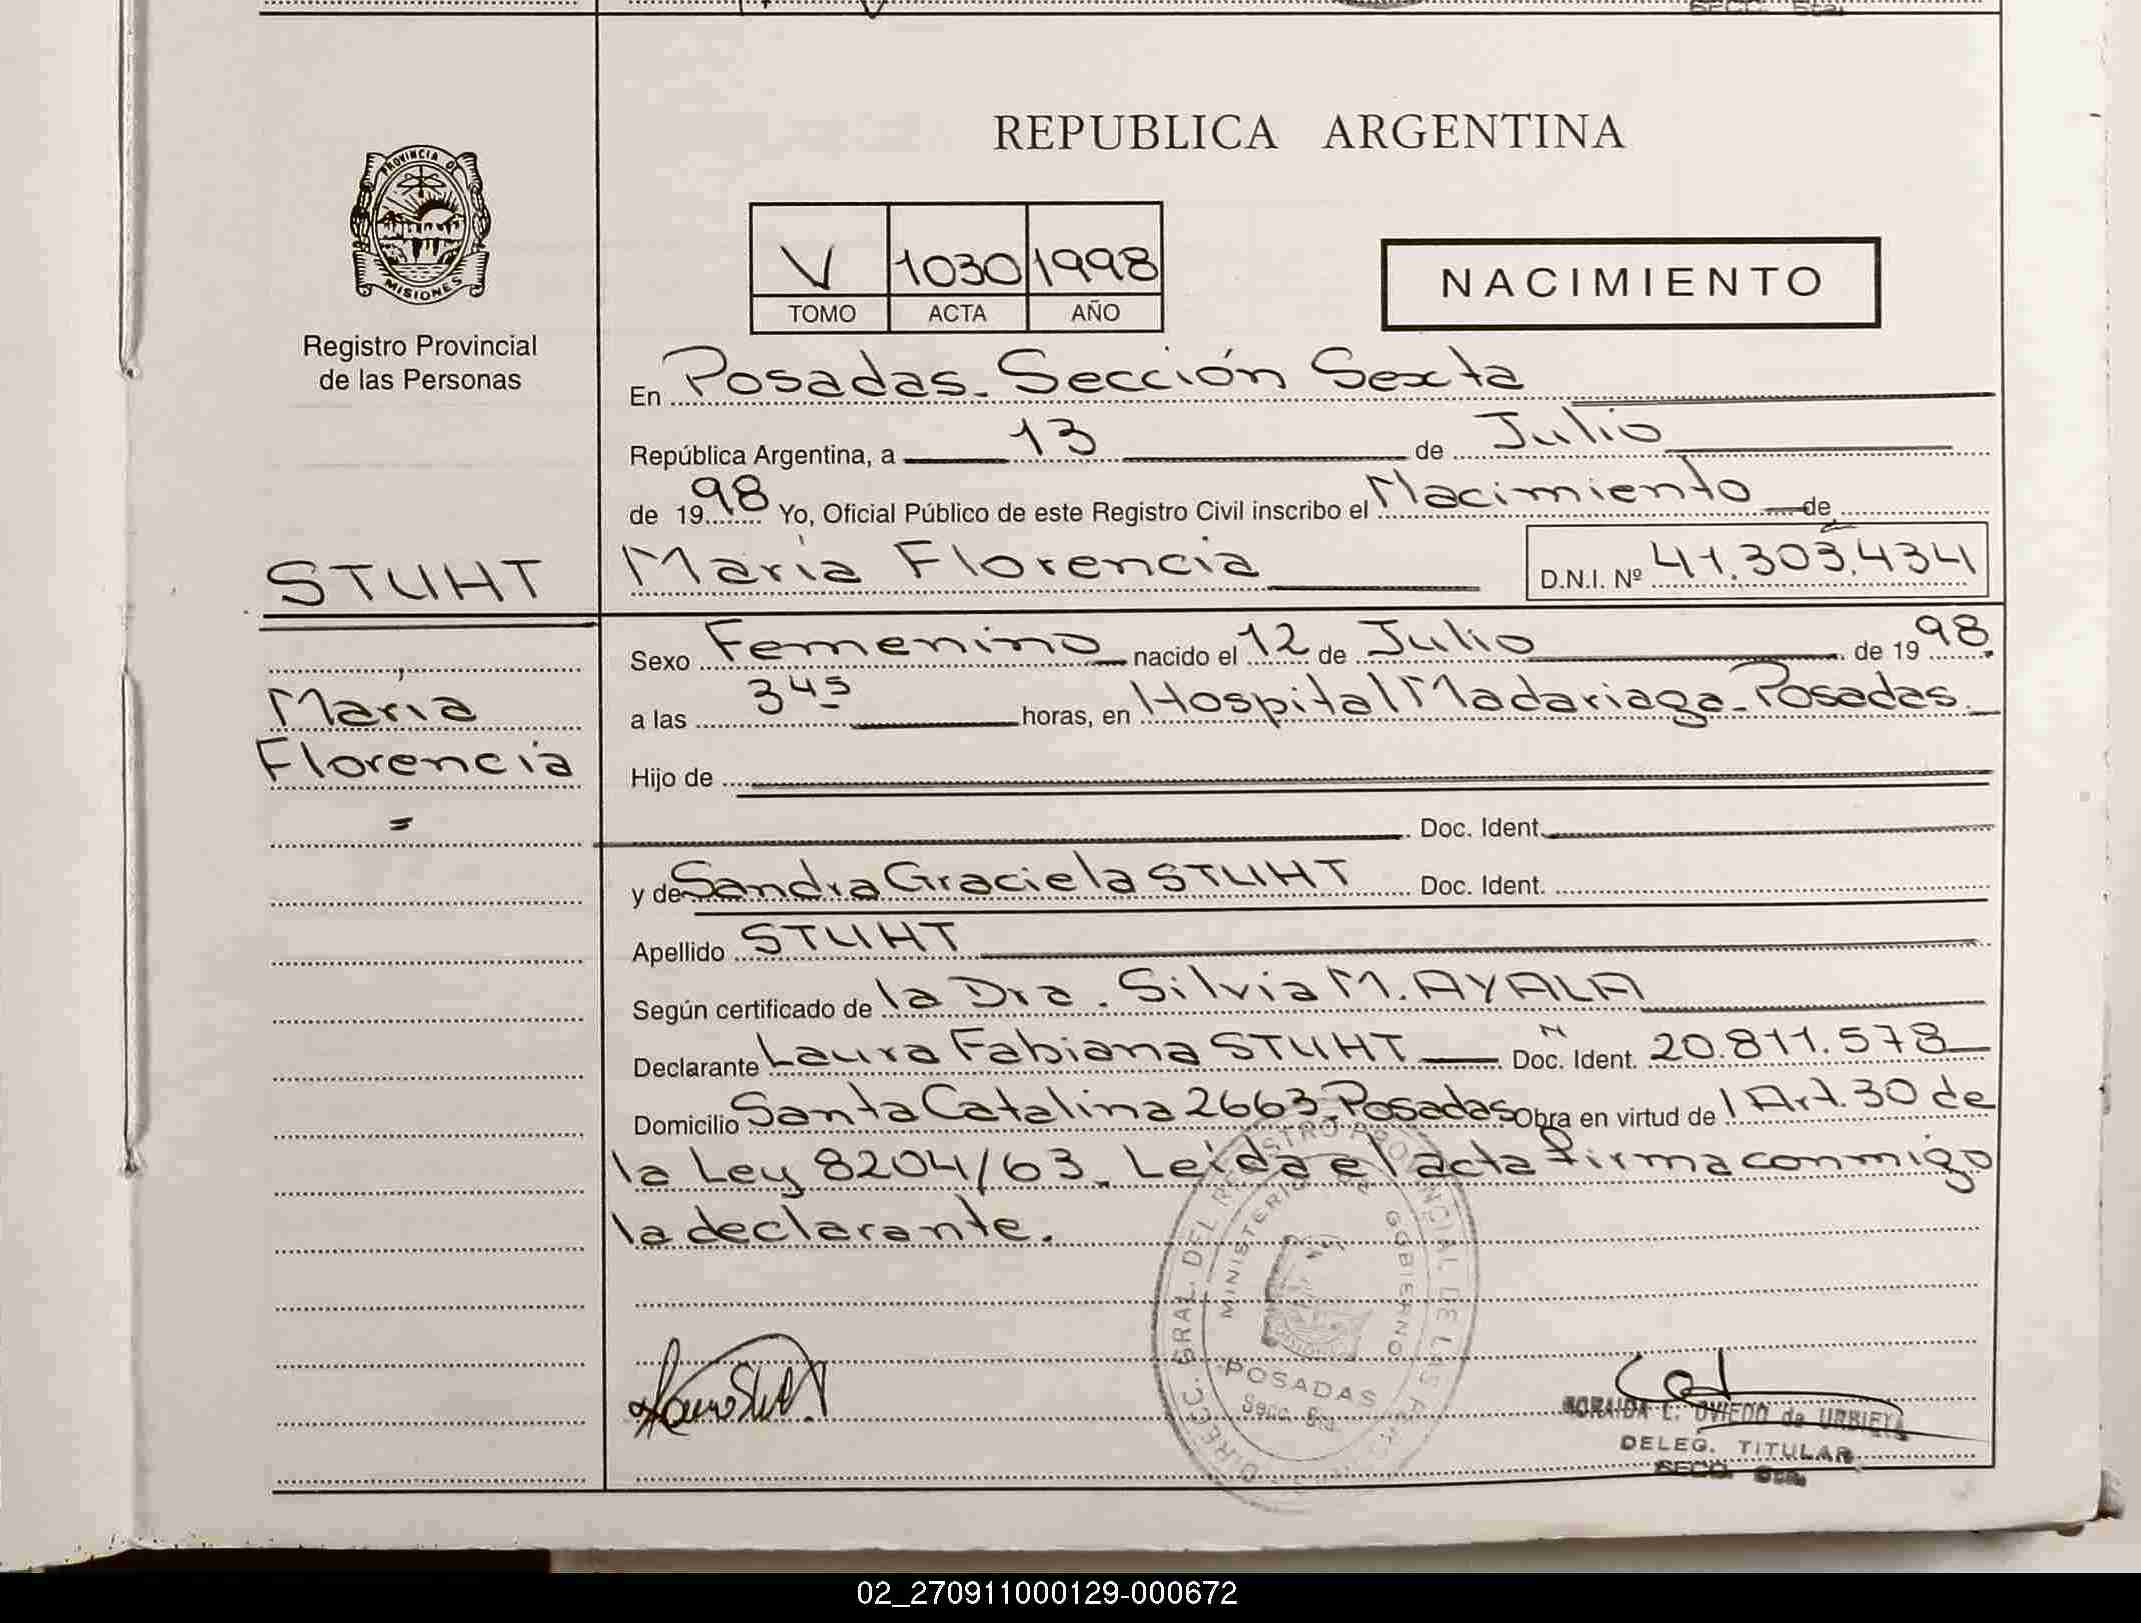 SECC. 6ta.
REPUBLICA ARGENTINA
PROVINCIA DE
MISIONES
Registro Provincial
de las Personas
V 1030 1998
TOMO ACTA AÑO
NACIMIENTO
En Posadas. Sección Sexta
República Argentina, a 13 de Julio
de 1998 Yo, Oficial Público de este Registro Civil inscribo el Nacimiento de
STUHT
María Florencia D.N.I. Nº 41.303.434
Sexo Femenino nacido el 12 de Julio de 1998.
María
a las 3 45 horas, en Hospital Madariaga-Posadas.
Florencia
Hijo de
=
Doc. Ident.
y de Sandra Graciela STUHT Doc. Ident.
Apellido STUHT
Según certificado de la Dra. Silvia M. AYALA
Declarante Laura Fabiana STUHT Doc. Ident. 20.811.578
Domicilio Santa Catalina 2663-Posadas Obra en virtud de l Art. 30 de
la Ley 8204/63. Leída el acta firma conmigo
la declarante.
DIRECC. GRAL. DEL REGISTRO PROVINCIAL DE LAS
MINISTERIO DE GOBIERNO
POSADAS
Secc. 6ta.
ZORAIDA E. OVIEDO de URBIETA
DELEG. TITULAR
SECC. 6ta.
02_270911000129-000672